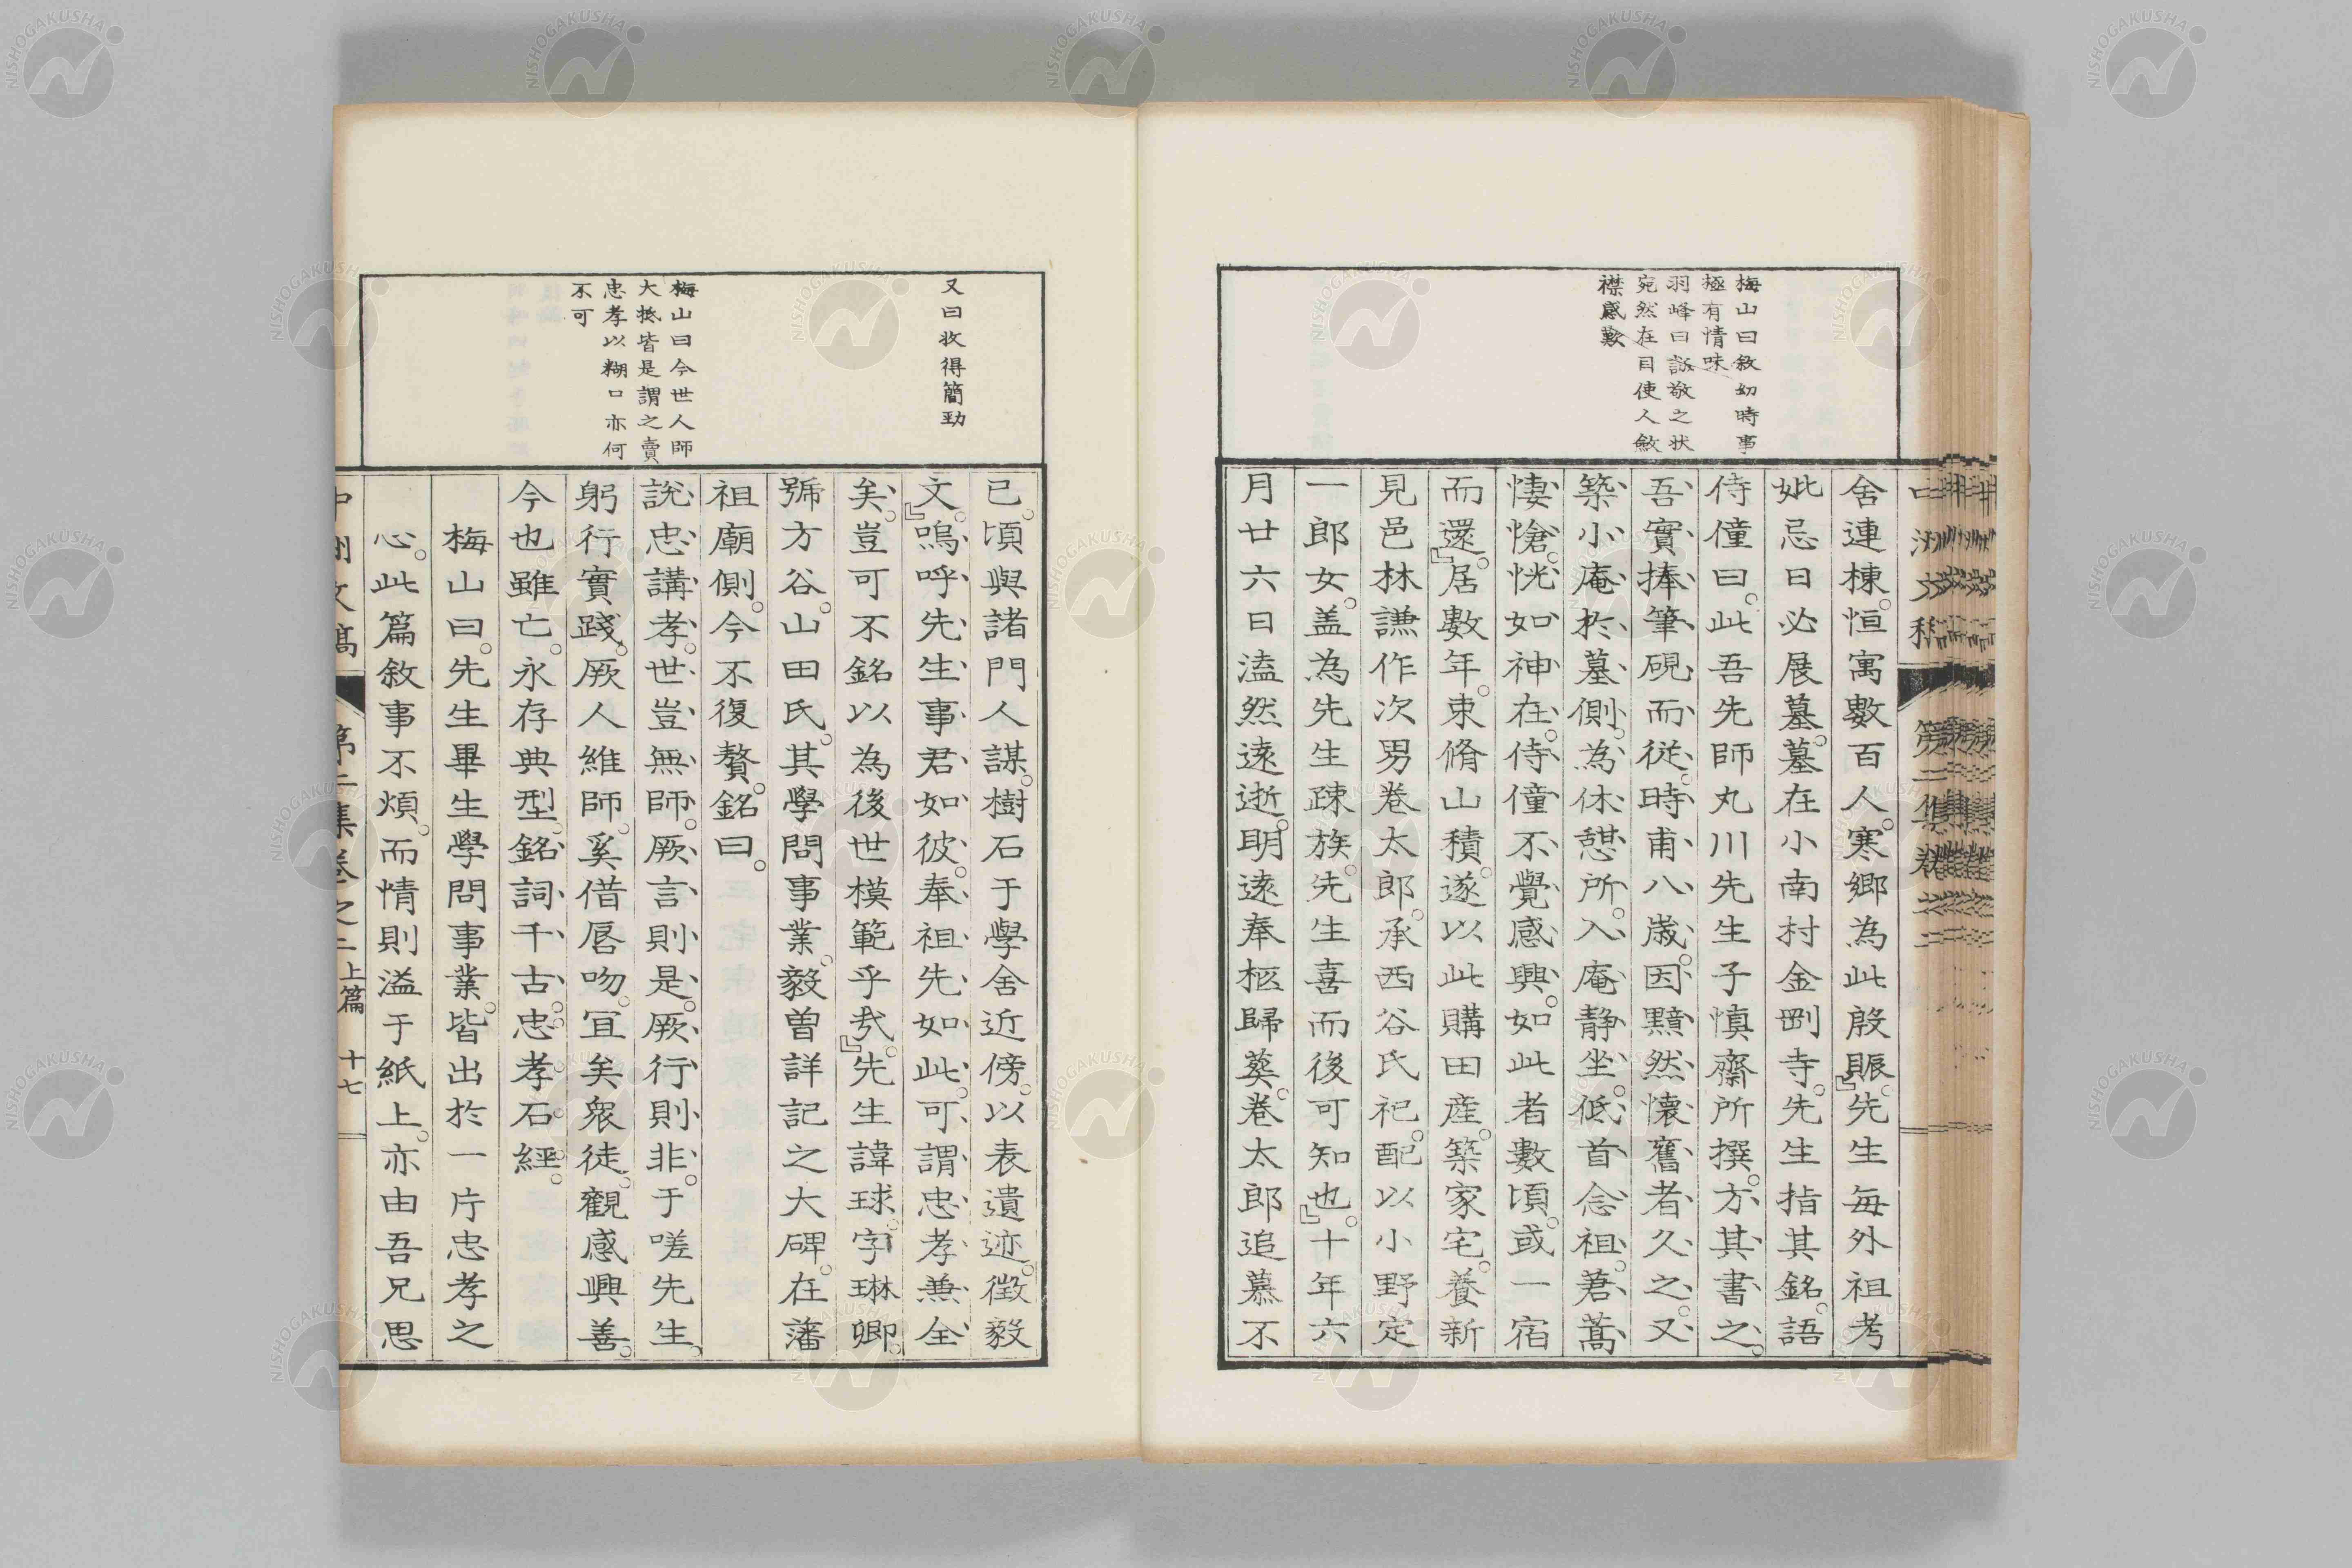 梅山曰敘幼時事
極有情味
羽峰曰誠敬之状
宛然在目使人斂
襟感歎
舍連棟。恒寓數百人。寒郷為此殷賑。』先生每外祖考
妣忌日必展墓。墓在小南村金剛寺。先生指其銘。語
侍僮曰。此吾先師丸川先生子慎齋所撰。方其書之。
吾實捧筆硯而從。時甫八歳。因黯然懷舊者久之。又
築小庵於墓側。為休憩所。入庵静坐。低首念祖。焄蒿
悽愴。恍如神在。侍僮不覺感興。如此者數頃。或一宿
而還。』居數年。束脩山積。遂以此購田産。築家宅。養新
見邑林謙作次男巻太郎。承西谷氏祀。配以小野定
一郎女。盖為先生疎族。先生喜而後可知也。』十年六
月廿六日溘然遠逝。明遠奉柩歸葬。巻太郎追慕不
又曰收得簡勁
梅山曰今世人師
大抵皆是謂之賣
忠孝以糊口亦何
不可
已。頃與諸門人謀。樹石于學舍近傍。以表遺迹。徴毅
文。』嗚呼先生事君如彼。奉祖先如此。可謂忠孝兼全
矣。豈可不銘以為後世模範乎哉。』先生諱球。字琳卿。
號方谷。山田氏。其學問事業。毅曽詳記之大碑。在藩
祖廟側。今不復贅。銘曰。
說忠講孝。世豈無師。厥言則是。厥行則非。于嗟先生。
躬行實踐。厥人維師。奚借唇吻。宜矣衆徒。觀感興善。
今也雖亡。永存典型。銘詞千古。忠孝石經。
梅山曰。先生畢生學問事業。皆出於一片忠孝之
心。此篇敘事不煩。而情則溢于紙上。亦由吾兄思
中洲文稿
第二集卷之二上篇
十七
NISHOGAKUSHA